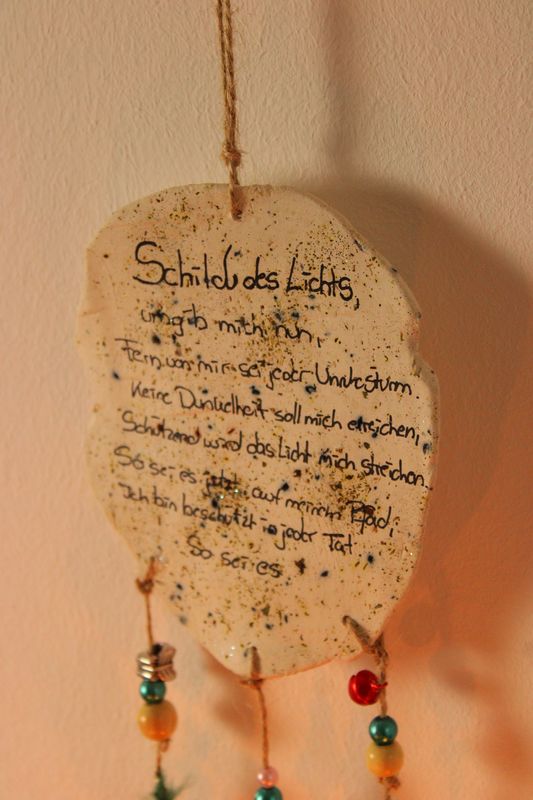 Schild des Lichts,
umgib mich nun,
Fern von mir sei jeder Unruhesturm.
Keine Dunkelheit soll mich erreichen,
Schützend wird das Licht mich streichen.
So sei es jetzt auf meinem Pfad,
Ich bin beschützt in jeder Tat
So sei es.